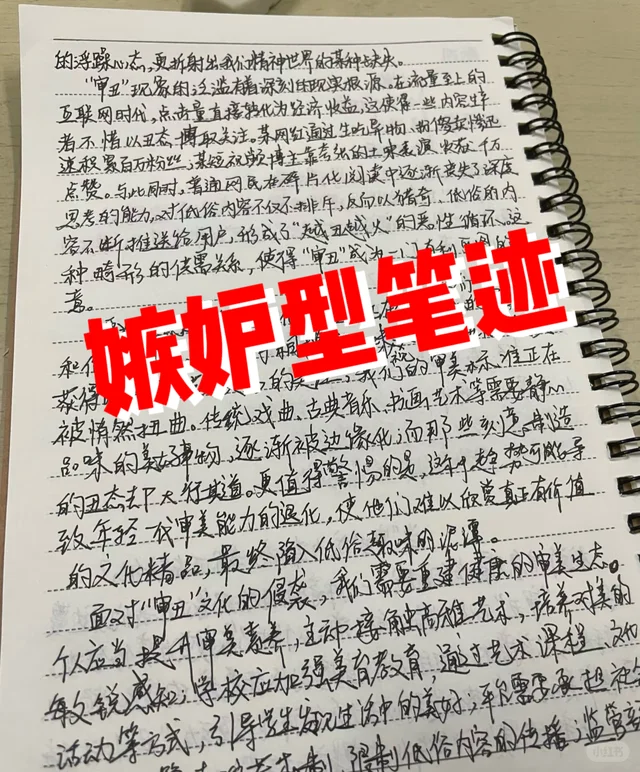 的浮躁心态,更折射出我们精神世界的某种缺失。
"审丑"现象的泛滥有着深刻的现实根源。在流量至上的
互联网时代,点击量直接转化为经济收益,这使得一些内容生产
者不惜以丑态博取关注。某网红通过生吃异物、扮傻卖惨迅
速积累百万粉丝,某短视频博主靠夸张的土味表演收获千万
点赞。与此同时,普通网民在碎片化阅读中逐渐丧失了深度
思考的能力,对低俗内容不仅不排斥,反而以猎奇、低俗的内
容不断推送给用户,形成了"越丑越火"的恶性循环。这
种畸形的供需关系,使得"审丑"成为一门有利可图的
意。
嫉妒型笔迹
获得 我们的审美标准正在
被悄然扭曲。传统戏曲、古典音乐、书画艺术等需要静心
品味的美好事物,逐渐被边缘化;而那些刻意制造
的丑态却大行其道。更值得警惕的是,这种趋势可能导
致年轻一代审美能力的退化,使他们难以欣赏真正有价值
的文化精品,最终陷入低俗趣味的泥潭。
面对"审丑"文化的侵袭,我们需要重建健康的审美生态。
个人应当提升审美素养,主动接触高雅艺术,培养对美的
敏锐感知;学校应加强美育教育,通过艺术课程、文化
活动等方式,引导学生发现生活中的美好;平台需要承担起社
限制低俗内容的传播;监管部
小红书